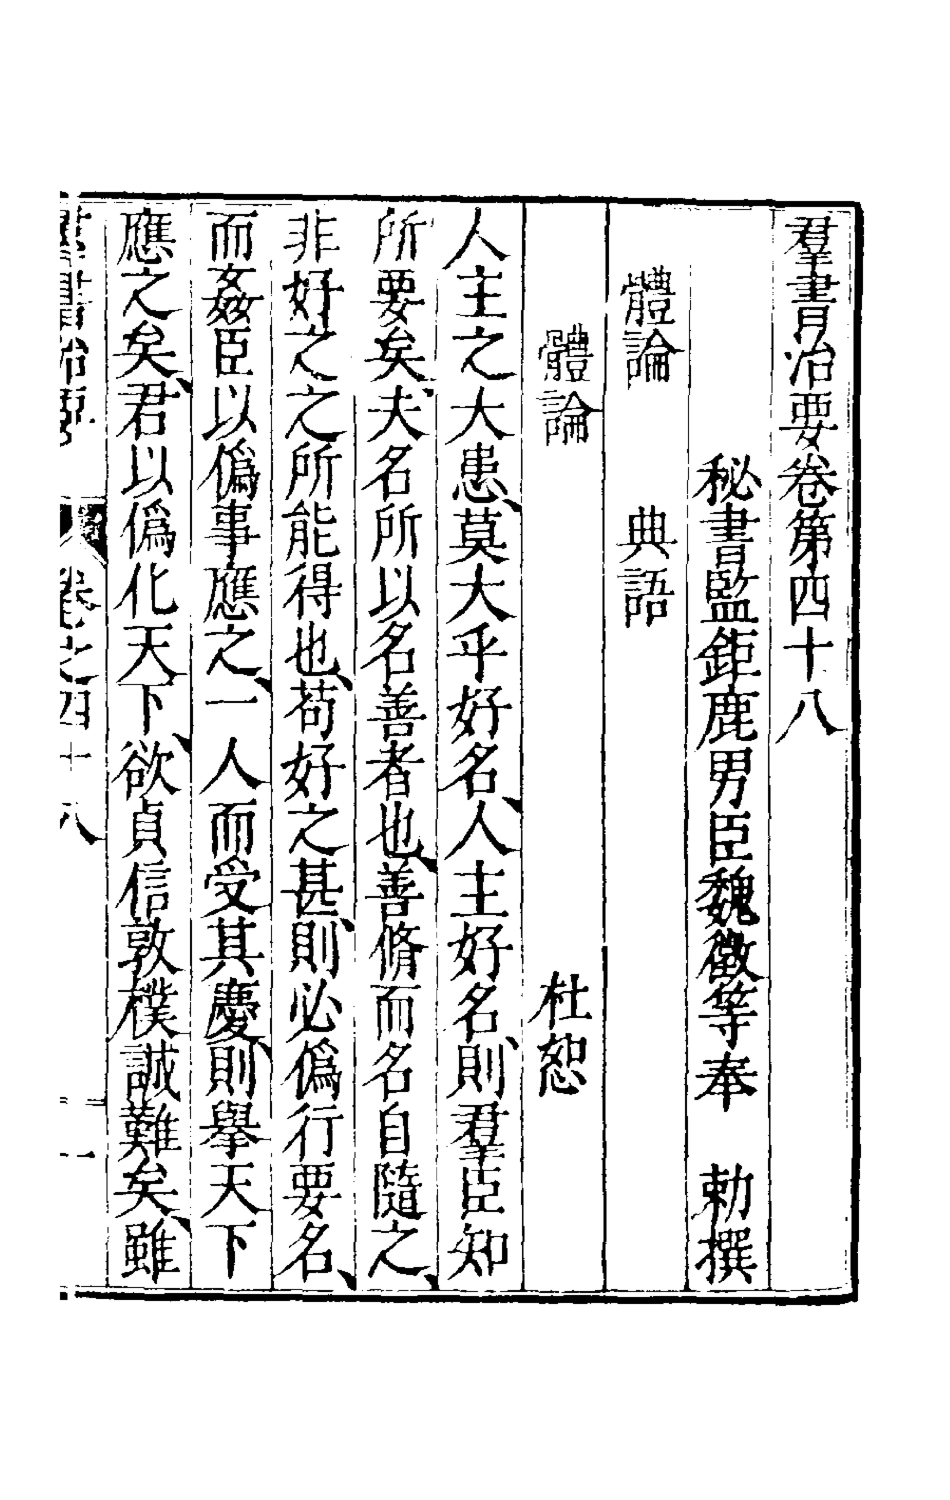 羣書治要卷第四十八
秘書監鉅鹿男臣魏徵等奉　勅撰
體論　典語
體論　杜恕
人主之大患、莫大乎好名、人主好名、則羣臣知
所要矣、夫名所以名善者也、善脩而名自隨之、
非好之之所能得也、苟好之甚、則必僞行要名、
而姦臣以僞事應之、一人而受其慶、則舉天下
應之矣、君以僞化天下、欲貞信敦樸誠難矣、雖
羣書治要　卷之四十八　一